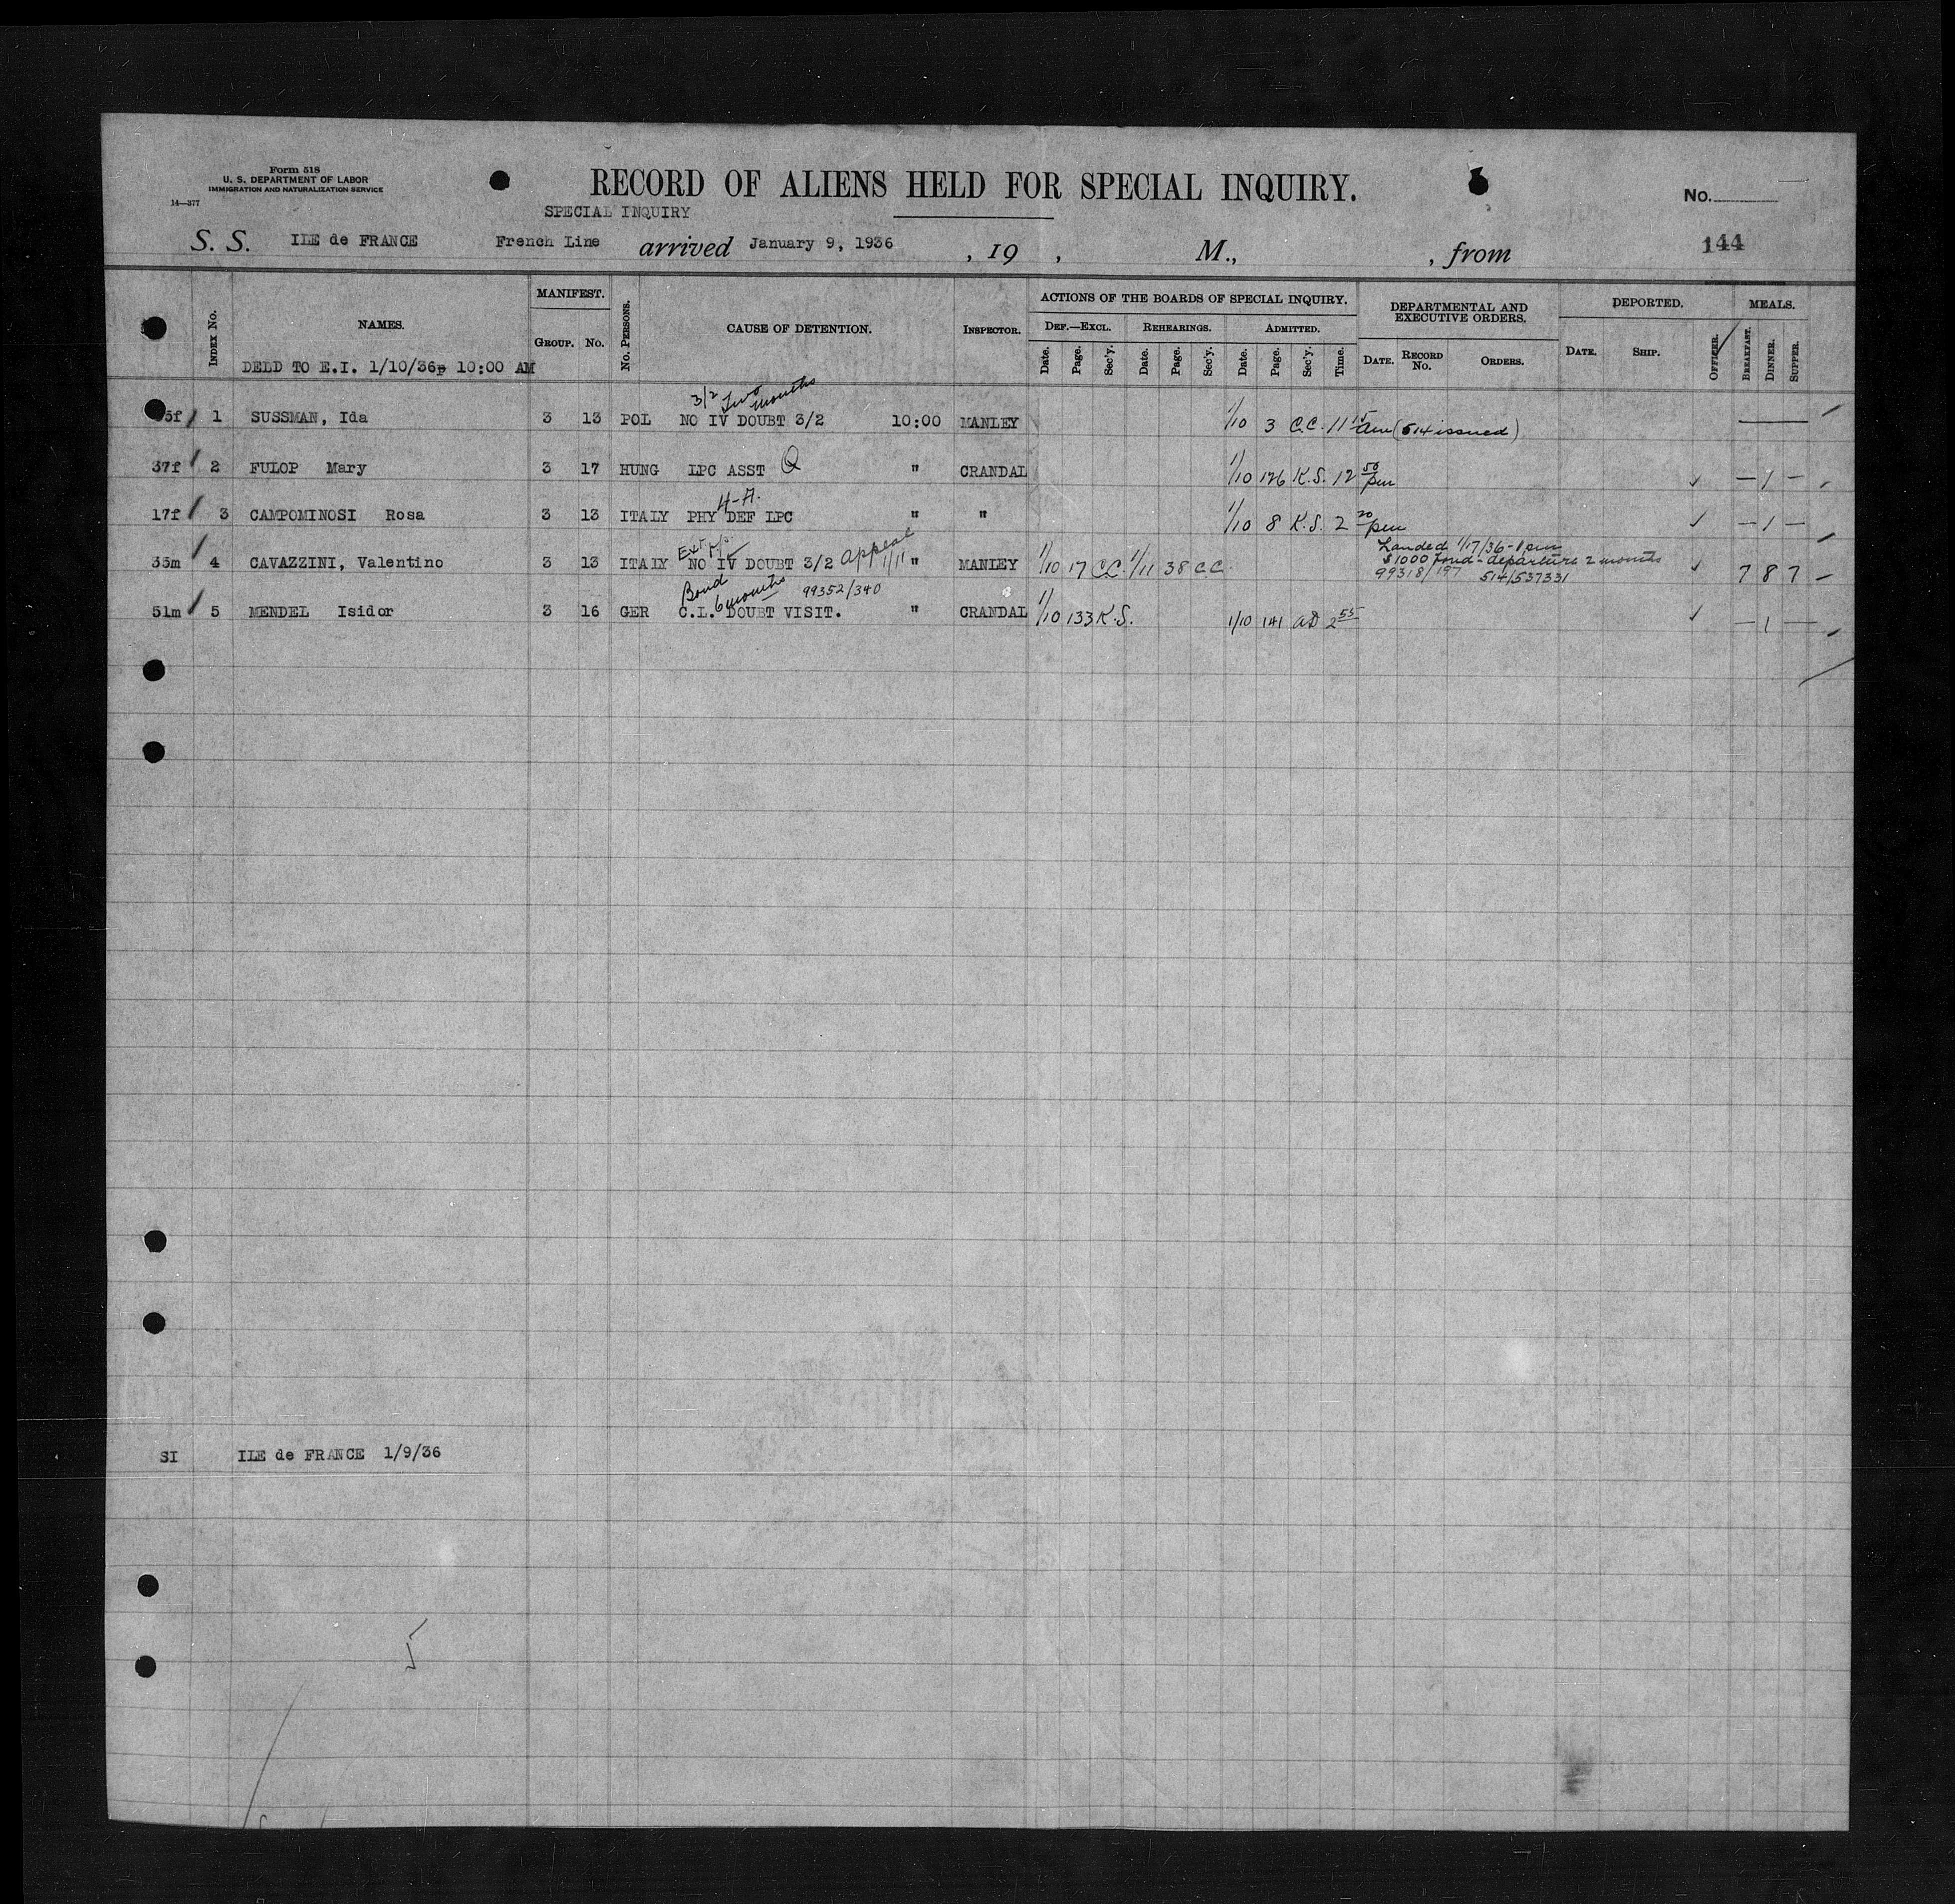 Form 518
U. S. DEPARTMENT OF LABOR
IMMIGRATION AND NATURALIZATION SERVICE
14—377
RECORD OF ALIENS HELD FOR SPECIAL INQUIRY.
No.
SPECIAL INQUIRY
S. S. ILE de FRANCE French Line arrived January 9, 1936 , 19 , M., , from 144
INDEX No. NAMES. MANIFEST. GROUP. No. No. PERSONS. CAUSE OF DETENTION. INSPECTOR.
ACTIONS OF THE BOARDS OF SPECIAL INQUIRY.
DEF.—EXCL. Date. Page. Sec'y. REHEARINGS. Date. Page. Sec'y. ADMITTED. Date. Page. Sec'y. Time.
DEPARTMENTAL AND EXECUTIVE ORDERS. DATE. RECORD No. ORDERS.
DEPORTED. DATE. SHIP. OFFICER. MEALS. BREAKFAST. DINNER. SUPPER.
DELD TO E.I. 1/10/36p 10:00 AM
3/2 Two months
5f 1 SUSSMAN, Ida 3 13 POL NO IV DOUBT 3/2 10:00 MANLEY 1/10 3 C.C. 11 15 am (514 issued)
37f 2 FULOP Mary 3 17 HUNG LPC ASST Q " CRANDAL 1/10 126 K.S. 12 50 pm — 1 —
H-A.
17f 3 CAMPOMINOSI Rosa 3 13 ITALY PHY DEF LPC " " 1/10 8 K.S. 2 20 pm — 1 —
Landed 1/17/36 - 1 pm
$1000 bond - departure 2 months
35m 4 CAVAZZINI, Valentino 3 13 ITALY NO IV DOUBT 3/2 appeal 1/11 " MANLEY 1/10 17 C.C. 1/11 38 C.C. 99318/197 514/537331 7 8 7
Bond 6 months 99352/340
51m 5 MENDEL Isidor 3 16 GER C.L. DOUBT VISIT. " CRANDAL 1/10 133 K.S. 1/10 141 AD 2 55 — 1 —
SI ILE de FRANCE 1/9/36
5